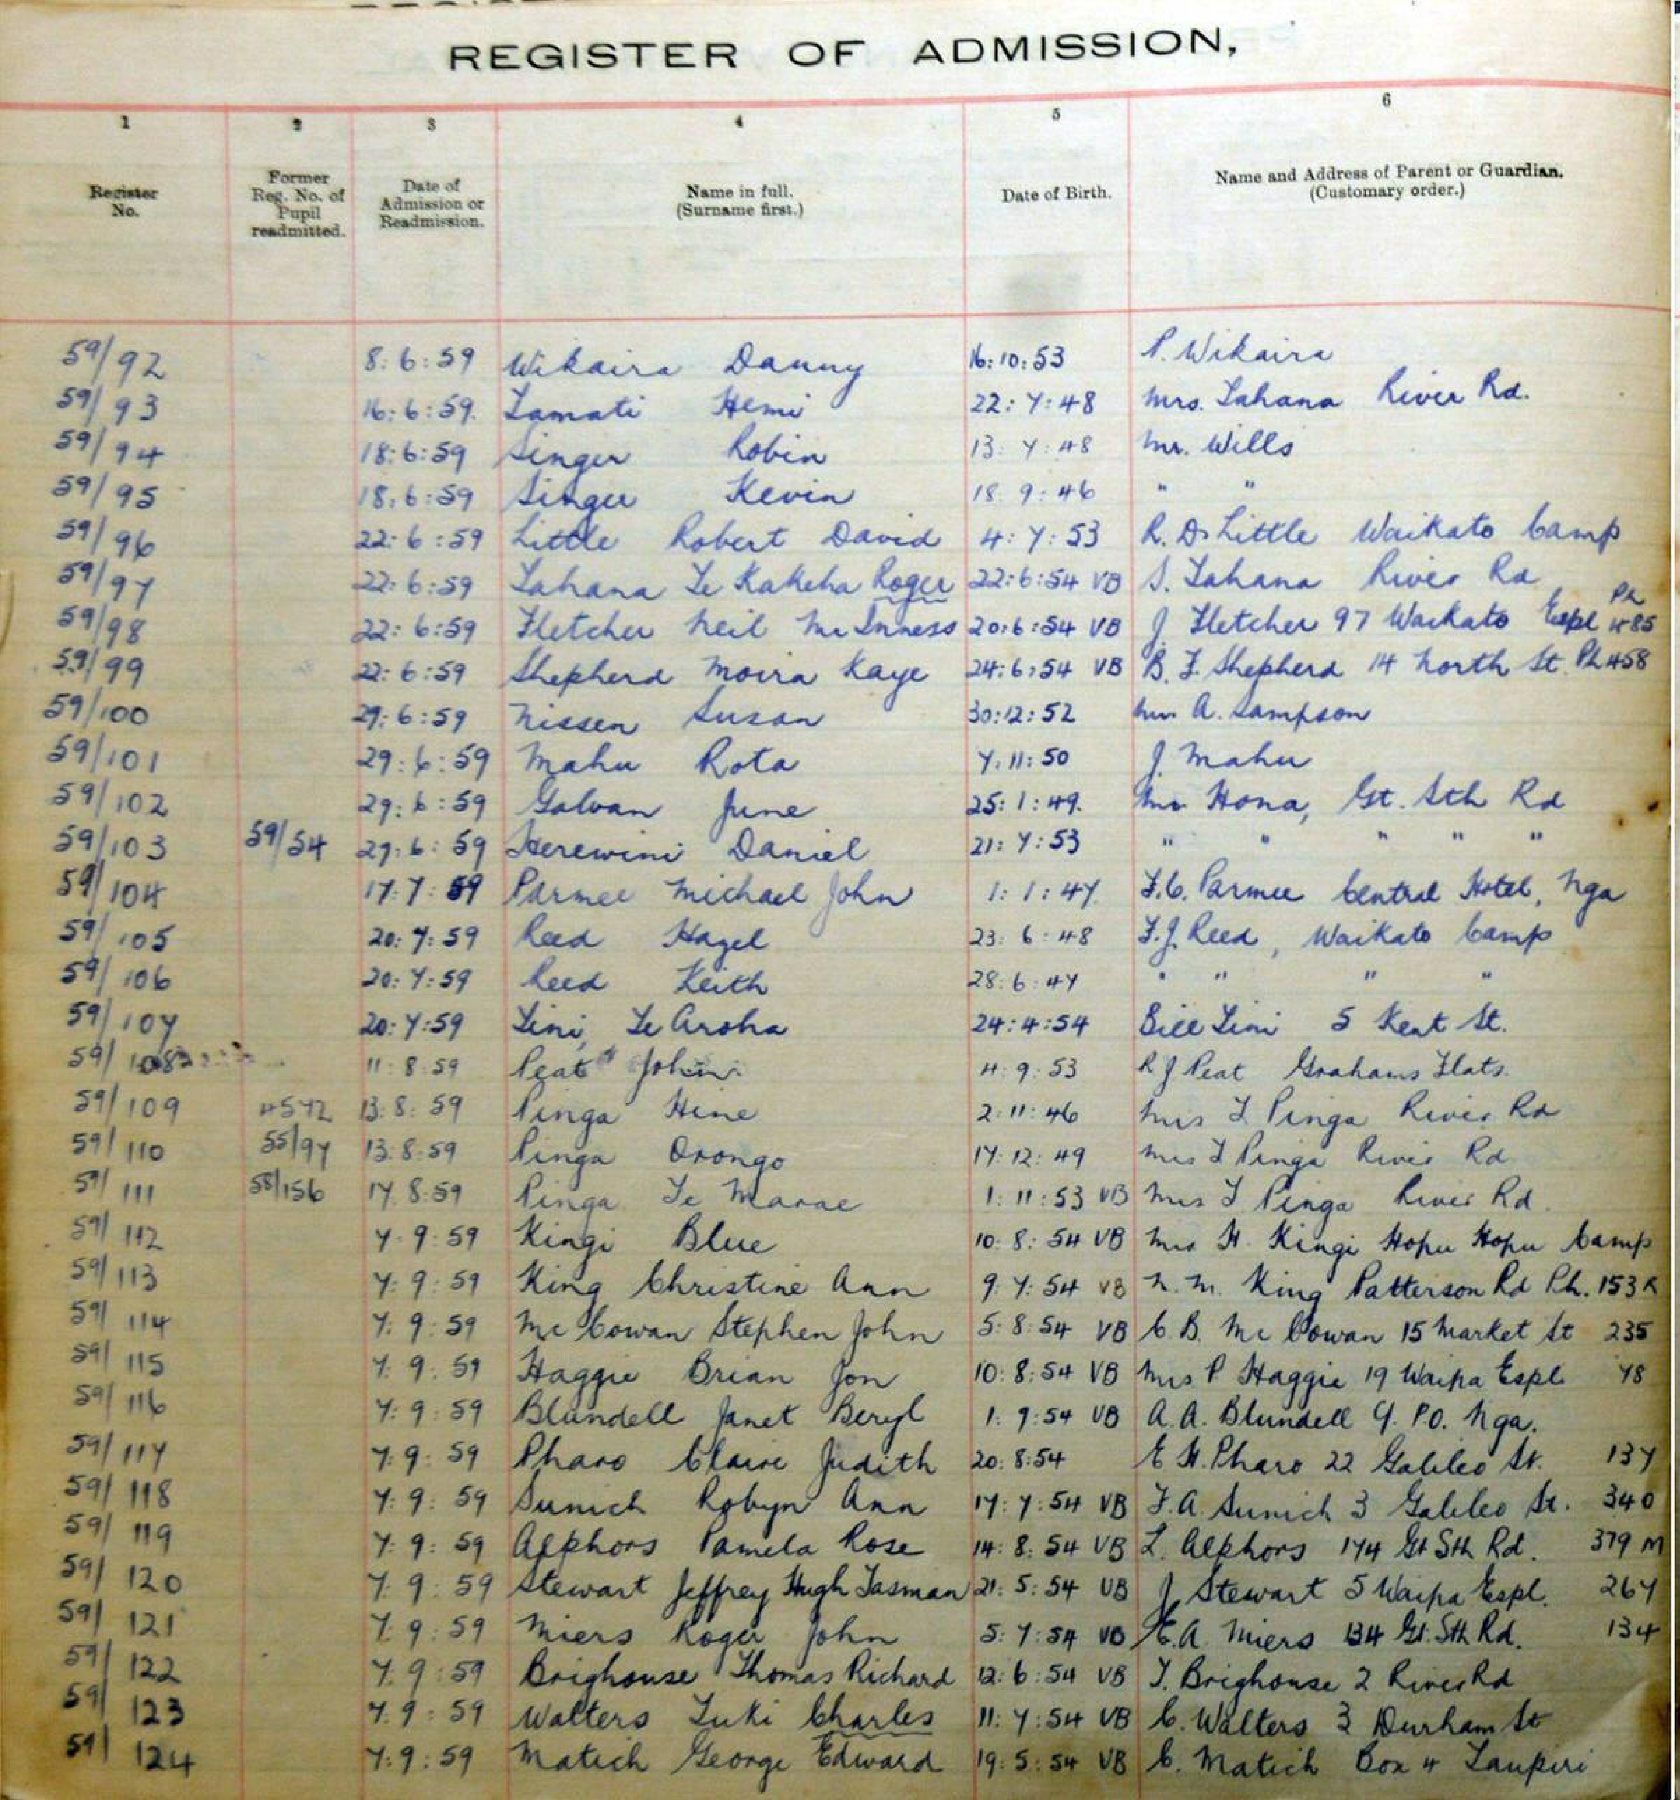 REGISTER OF ADMISSION,
1 2 3 4 5 6
Register No. Former Reg. No. of Pupil readmitted. Date of Admission or Readmission. Name in full. (Surname first.) Date of Birth. Name and Address of Parent or Guardian. (Customary order.)
59/92 8:6:59 Wikaira Danny 16:10:53 P. Wikaira
59/93 16:6:59. Tamati Hemi 22:7:48 Mrs. Tahana River Rd.
59/94 18:6:59 Singer Robin 13:7:48 Mr. Wills
59/95 18:6:59 Singer Kevin 18:9:46 " "
59/96 22:6:59 Little Robert David 4:7:53 R. D. Little Waikato Camp
59/97 22:6:59 Tahana Te Kakeha Roger 22:6:54 VB S. Tahana River Rd
59/98 22:6:59 Fletcher Neil McInness 20:6:54 VB J Fletcher 97 Waikato Espl Ph 485
59/99 22:6:59 Shepherd Moira Kaye 24:6:54 VB B. F. Shepherd 14 North St. Ph 458
59/100 29:6:59 Nissen Susan 30:12:52 A. Sampson
59/101 29:6:59 Mahu Rota 7:11:50 J. Mahu
59/102 29:6:59 Galvan June 25:1:49. Hona, Gt. Sth Rd
59/103 59/54 29:6:59 Herewini Daniel 21:7:53 " " " " "
59/104 17:7:59 Parmee Michael John 1:1:47 F.C. Parmee Central Hotel, Nga
59/105 20:7:59 Reed Hazel 23:6:48 F.J. Reed, Waikato Camp
59/106 20:7:59 Reed Keith 28:6:47 " " " "
59/107 20:7:59 Tini, Te Aroha 24:4:54 Bill Tini 5 Kent St.
59/108 11:8:59 Peat John 4:9:53 R J Peat Grahams Flats.
59/109 4572 13:8:59 Pinga Hine 2:11:46 Mrs T Pinga River Rd
59/110 55/97 13:8:59 Pinga Orongo 17:12:49 Mrs T Pinga River Rd
59/111 58/156 17.8:59 Pinga Te Marae 1:11:53 VB Mrs T Pinga River Rd.
59/112 7:9:59 Kingi Blue 10:8:54 VB Mrs H. Kingi Hopu Hopu Camp
59/113 7:9:59 King Christine Ann 9:7:54 VB N. M. King Patterson Rd Ph. 153 K
59/114 7:9:59 McCowan Stephen John 5:8:54 VB C. B. McCowan 15 Market St 235
59/115 7:9:59 Haggie Brian Jon 10:8:54 VB Mrs P Haggie 19 Waipa Espl 78
59/116 7:9:59 Blundell Janet Beryl 1:9:54 VB A. A. Blundell P.O. Nga.
59/117 7:9:59 Pharo Claire Judith 20:8:54 E H. Pharo 22 Galileo St. 137
59/118 7:9:59 Sunich Robyn Ann 17:7:54 VB F.A. Sunich 3 Galileo St. 340
59/119 7:9:59 Alphors Pamela Rose 14:8:54 VB L. Alphors 174 Gt Sth Rd. 379 M
59/120 7:9:59 Stewart Jeffrey Hugh Tasman 21:5:54 VB J Stewart 5 Waipa Espl. 267
59/121 7:9:59 Miers Roger John 5:7:54 VB E.A. Miers 134 Gt. Sth Rd. 134
59/122 7:9:59 Brighouse Thomas Richard 12:6:54 VB T. Brighouse 2 River Rd
59/123 7:9:59 Walters Tuki Charles 11:7:54 VB C. Walters 3 Durham St
59/124 7:9:59 Matich George Edward 19:5:54 VB C. Matich Box 4 Taupiri